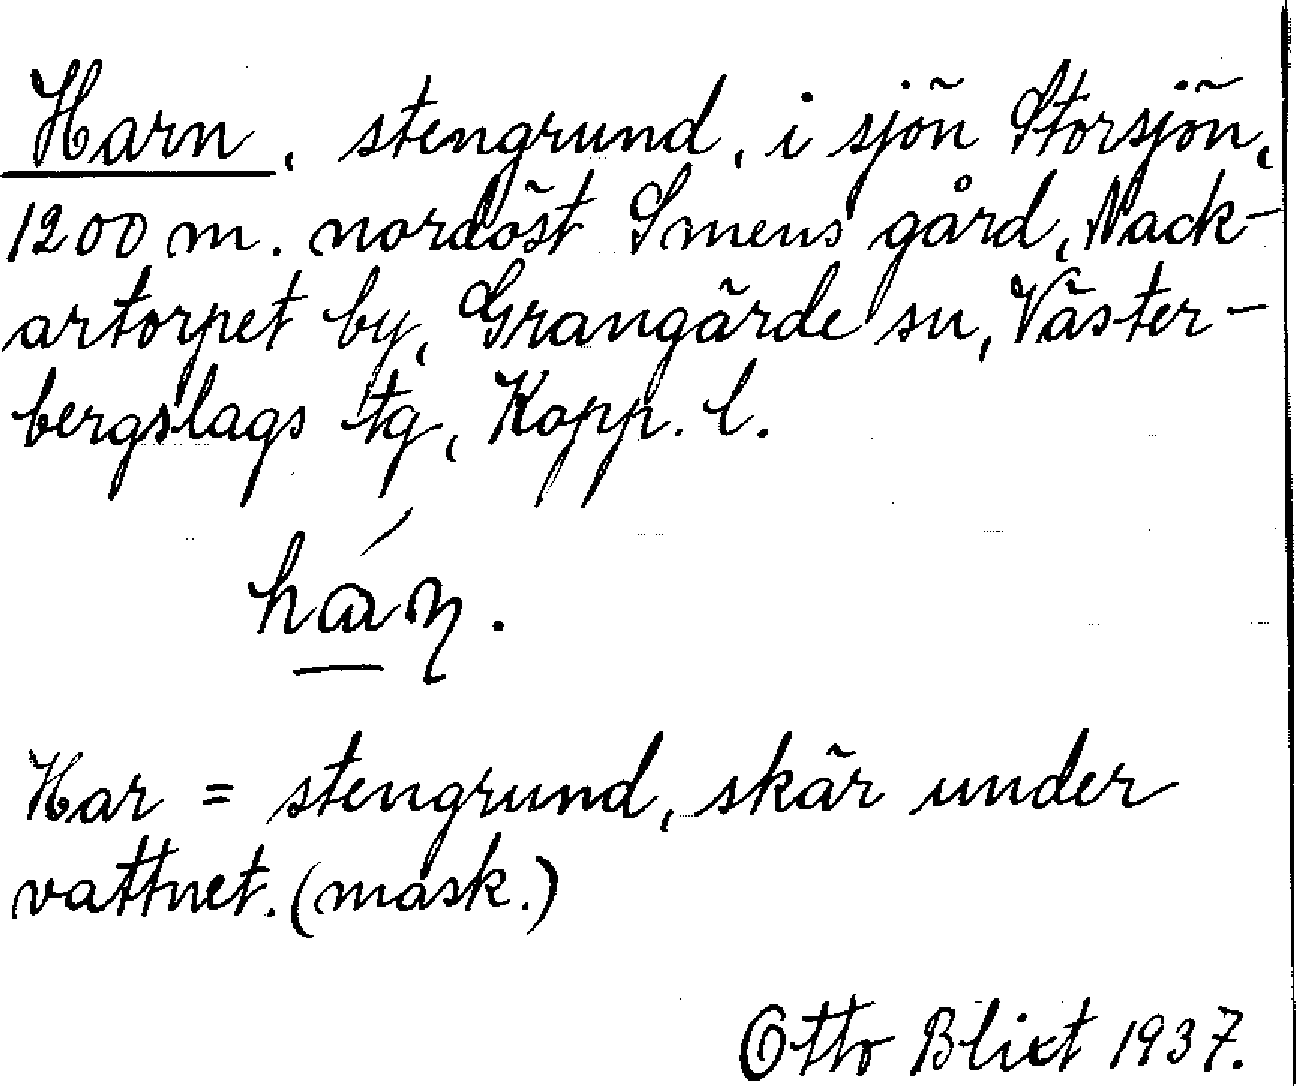 Harn, stengrund, i sjön Storsjön,
1200 m. nordöst Smens gård, Nack-
artorpet by, Grangärde sn, Väster-
bergslags tg, Kopp. l.
há̱ɳ.
Har = stengrund, skär under
vattnet. (mask.)
Otto Blixt 1937.